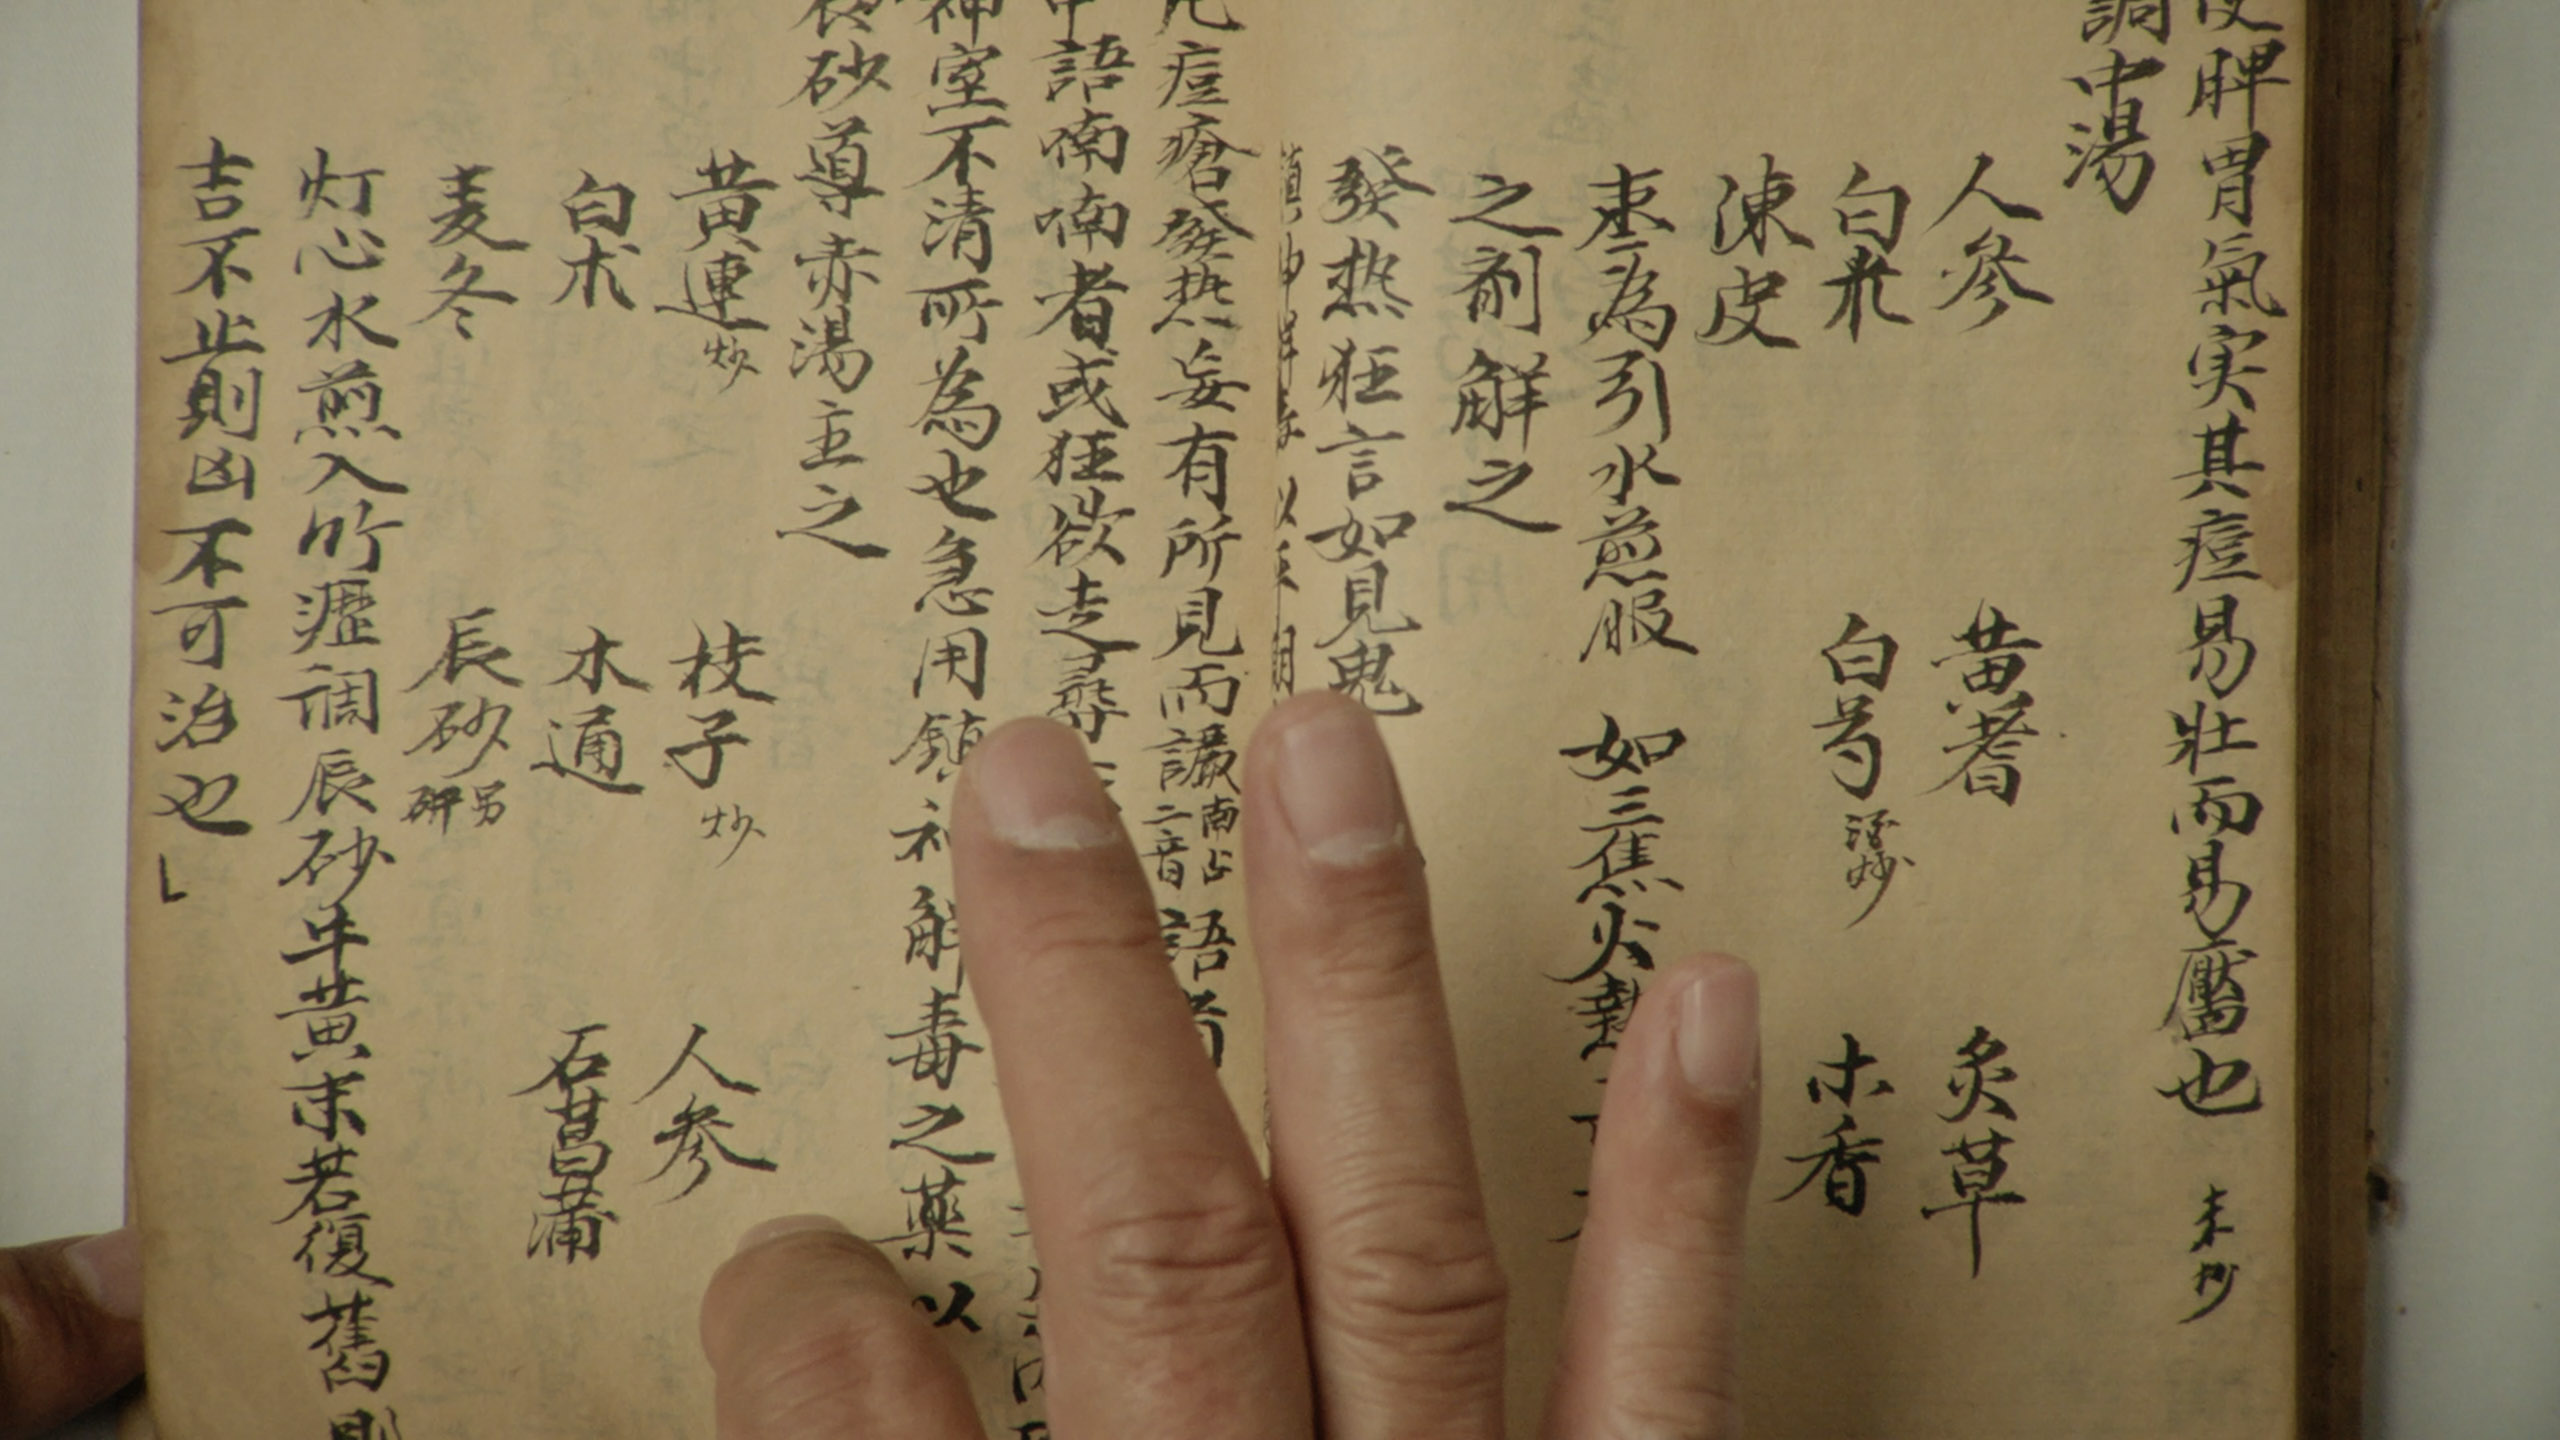 脾胃氣实其痘易壯而易靨也 未抄
調中湯
人參 黃耆 炙草
白朮 白芍 酒炒 木香
陳皮
枣為引水煎服 如三焦火熱
之剤解之
發热狂言如見鬼
痘瘡發热妄有所見而讝 南占二音 語者
中語喃喃者或狂欲走尋
神室不清所為也急用鎮神解毒之藥以
辰砂導赤湯主之
黃連 炒 枝子 炒 人參
白朮 木通 石菖蒲
麦冬 辰砂 另研
灯心水煎入竹瀝調辰砂牛黃末若復舊則
吉不止則凶不可治也